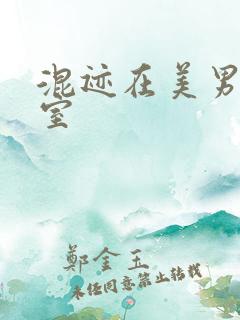 混迹在美男
室
鄭金玉
未经同意禁止转载